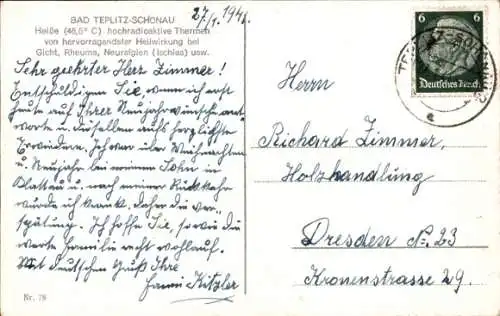 27/1. 1941.
BAD TEPLITZ-SCHÖNAU
Heiße (46,5° C) hochradioaktive Thermen
von hervorragendster Heilwirkung bei
Gicht, Rheuma, Neuralgien (Ischias) usw.
Sehr geehrter Herr Zimmer!
Entschuldigen Sie, wenn ich erst
heute auf Ihre Neujahrwünsche ant-
worte u. dieselben aufs herzlichste
Erwidere. Ich war über Weihnachten
u. Neujahr bei meinem Sohn in
Plattau u. nach meiner Rückkehr
wurde ich krank. Daher die ver-
spätung. Ich hoffe Sie, sowie die
werte Familie recht wohlauf.
Mit deutschem Gruß Ihre
Kitzler
Nr. 78
6 6
Deutsches Reich
TEPLITZ-SCHÖNAU
Herrn
Richard Zimmer,
Holzhandlung
Dresden N. 23
Kronenstrasse 29.